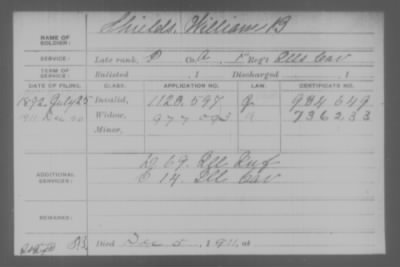 NAME OF SOLDIER: Shields, William B
SERVICE: Late rank, P Co. A, 1" Reg't Ills Cav
TERM OF SERVICE: Enlisted , 1 Discharged , 1
DATE OF FILING. CLASS. APPLICATION NO. LAW. CERTIFICATE NO.
1892 July 25 Invalid, 1123.597 984649
1911 Dec Widow, 977 736233
Minor,
ADDITIONAL SERVICES: D. 69. Ill Inf
C 14. Ill Cav
REMARKS:
Died Dec 5, 1911, at